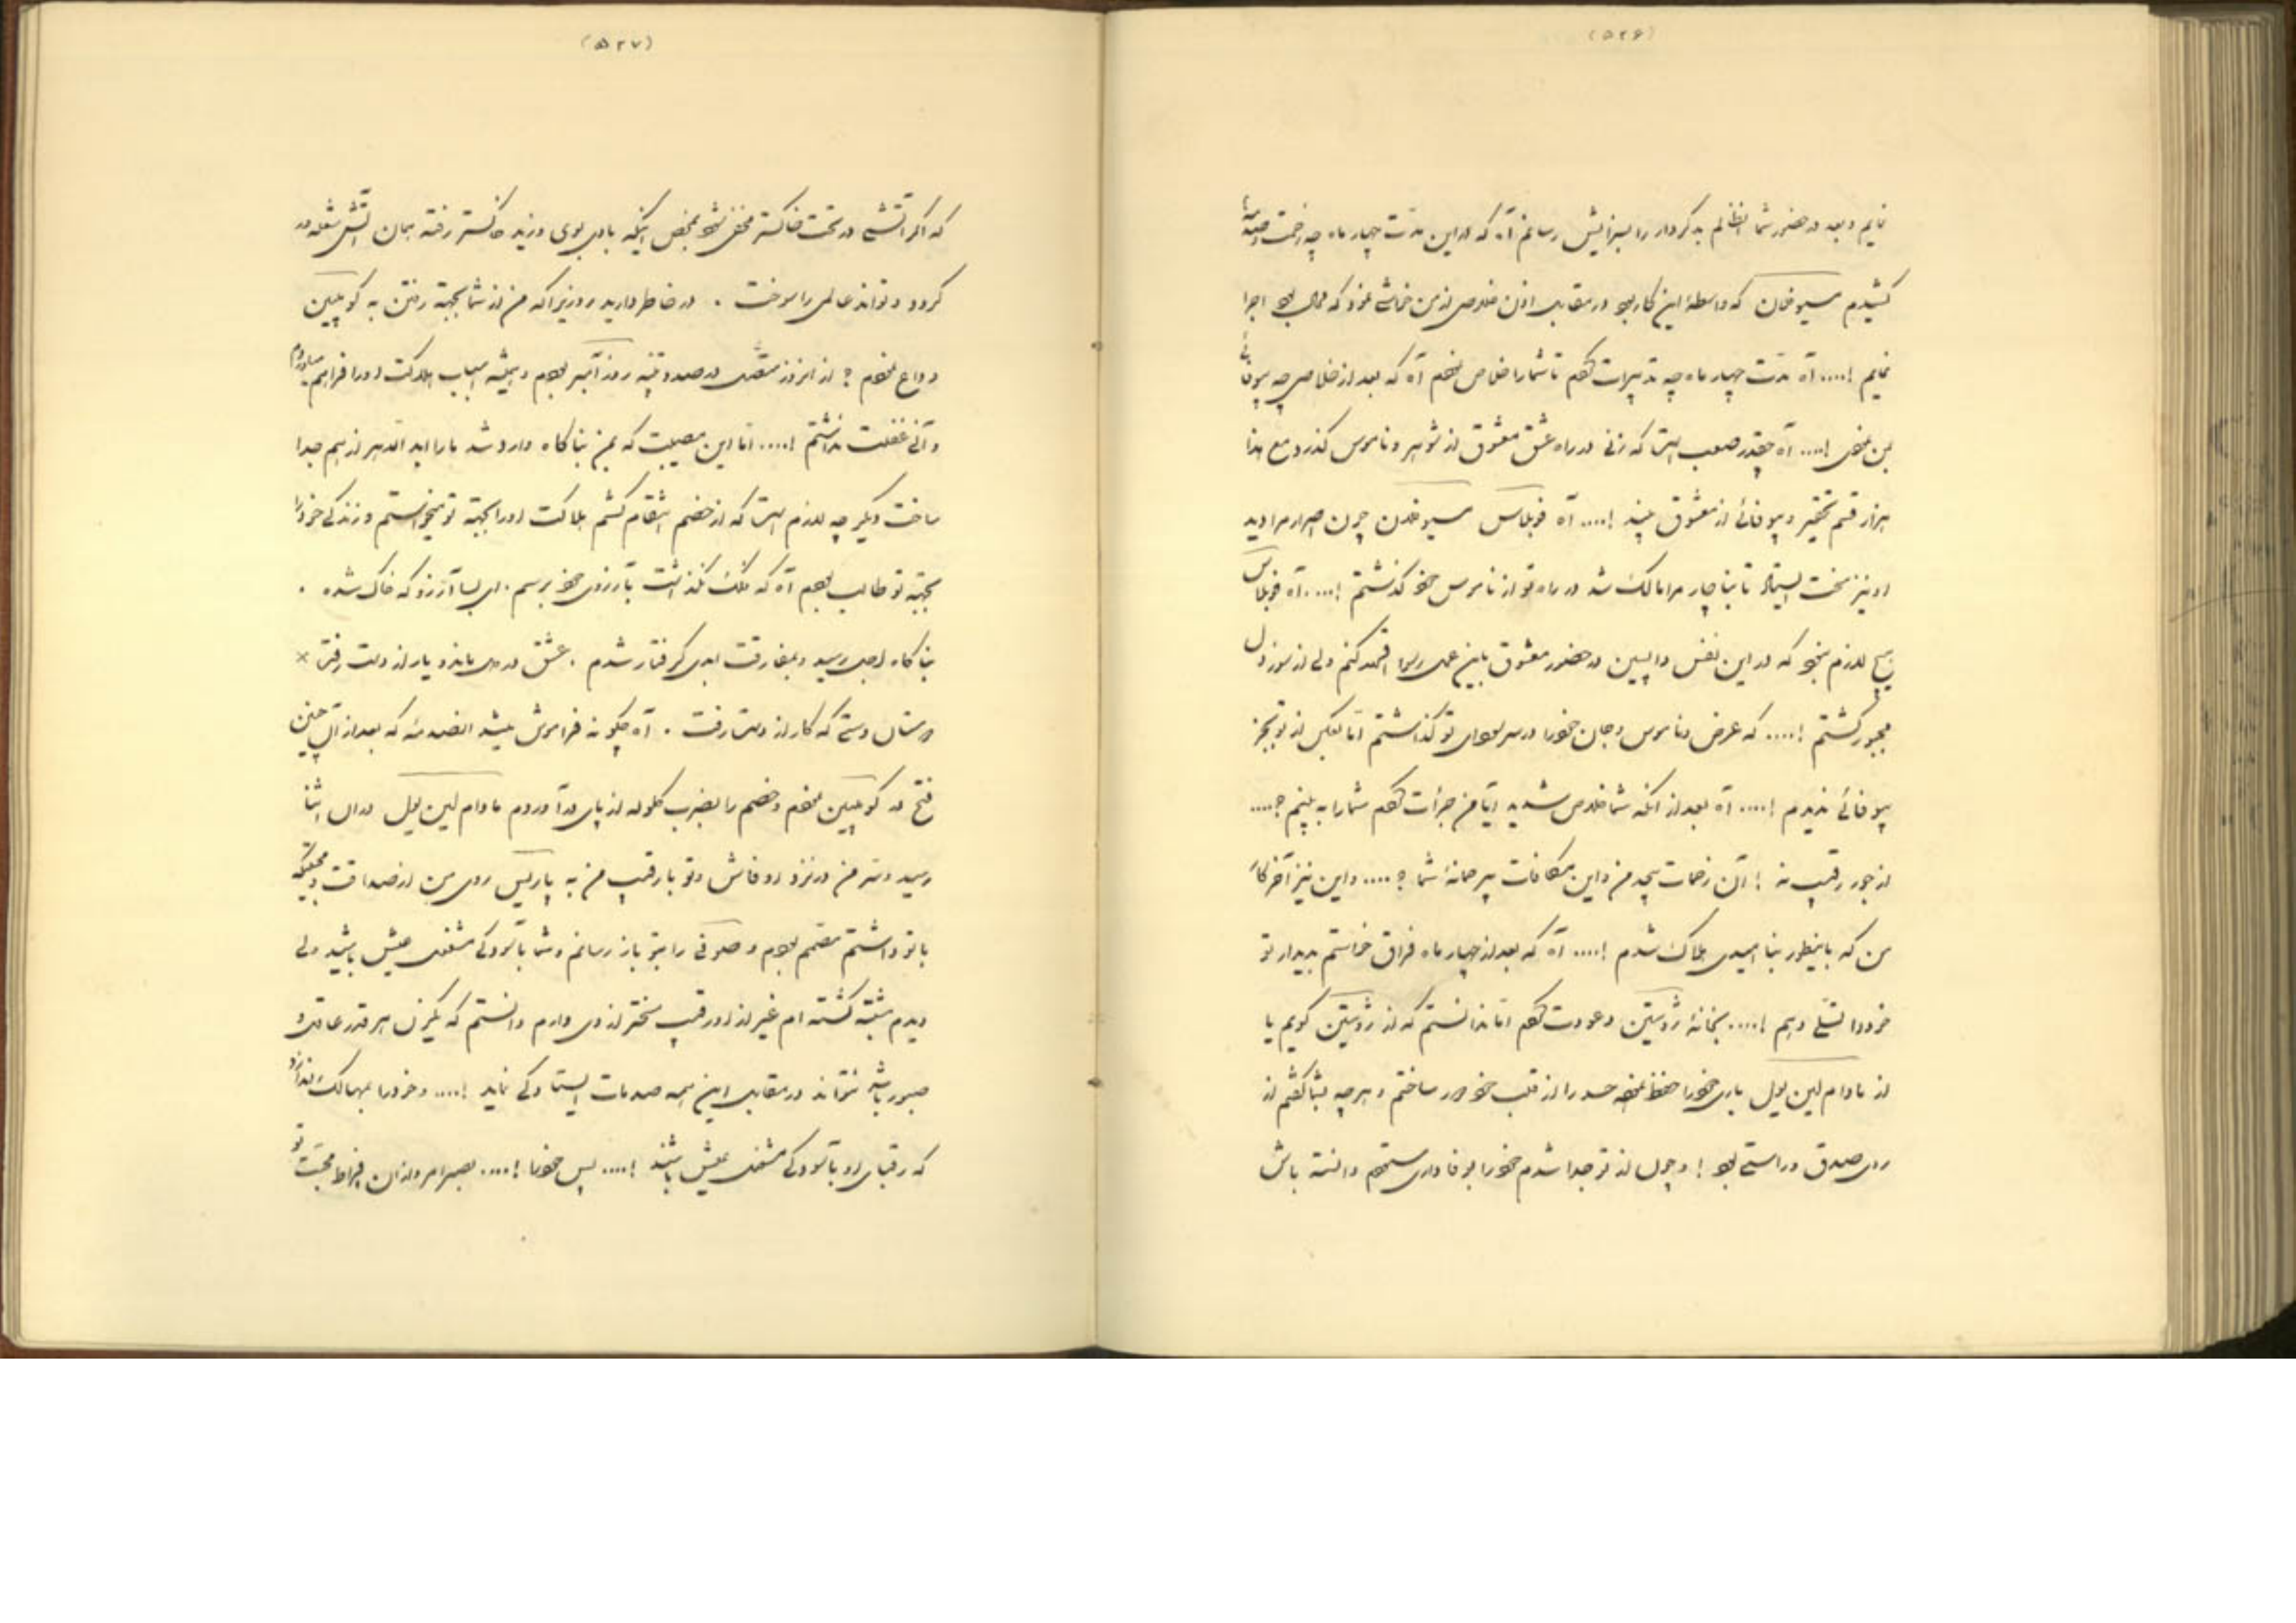 (۵۲۶)
نمایم و بعد در حضور شما آن ظالم بدکردار را بسزایش رسانم آه که در این مدت چهار ماه چه زحمت و صدمه‌ها
کشیدم مسیو فان که واسطهٔ این کار بود در مقابل اذن خلاص از من خواهشی نمود که محال بود اجرا
نمایم !.... آه مدت چهار ماه چه تدبیرات کردم تا شما را خلاص نمودم آه که بعد از خلاصی چه بیوفائی
بمن نمودی !.... آه چقدر صعب است که زنی در راه عشق معشوق از شوهر و ناموس گذرد مع هذا
هزار قسم تحقیر و بیوفائی از معشوق بیند !.... آه فوبلاس مسیو فلدن چون اصرار مرا دید
او نیز سخت ایستاد تا بناچار مرا مالک شد در راه تو از ناموس خود گذشتم !.... آه فوبلاس
هیچ لازم نبود که در این نفس واپسین در حضور معشوق باین عمل رسوا اقرار کنم ولی از سوز دل
مجبور گشتم !.... که عرض و ناموس و جان خود را در سر سودای تو گذاشتم اما بعکس از تو بجز
بیوفائی ندیدم !.... آه بعد از آنکه شما خلاص شدید آیا من جرأت کردم شما را به بینم ؟....
از جور رقیب نه ! آن زحمات بیحد من و این مکافات بیرحمانهٔ شما ؟.... و این نیز آخر کار
من که باینطور بناامیدی هلاک شدم !.... آه که بعد از چهار ماه فراق خواستم بدیدار تو
خود را تسلی دهم !.... بخانهٔ ژوستین دعوت کردم اما ندانستم که از ژوستین گویم یا
از مادام لین یول باری خود را حفظ نموده حسد را از قلب خود دور ساختم و هر چه بشما گفتم از
روی صدق و راستی بود ! و چون از تو جدا شدم خود را بوفاداری ستودم دانسته باش
(۵۲۷)
که اگر آتشی در تحت خاکستر مخفی شود بمحض اینکه بادی بوی وزید خاکستر رفته همان آتش شعله‌ور
گردد و تواند عالمی را سوخت . در خاطر دارید روزیرا که من از شما بجهة رفتن به کومپین
وداع نمودم ؟ از انروز منتظر در صدد و تهیه روز آخر بودم و همیشه اسباب هلاکت او را فراهم میاوردم
و آنی غفلت نداشتم !.... اما این مصیبت که بمن بناگاه وارد شد ما را ابد الدهر از هم جدا
ساخت دیگر چه لازم است که از خصم انتقام کشم هلاکت او را بجهة تو میخواستم و زندگی خود را
بجهة تو طالب بودم آه که فلک نگذاشت بآرزوی خود برسم . ای بسا آرزو که خاک شده .
بناگاه اجل رسید و بمفارقت ابدی گرفتار شدم . عشق در دل ماند و یار از دست رفت ×
دوستان دستی که کار از دست رفت . آه چگونه فراموش میشد انصدمه که بعد از آن چنین
فتح در کومپین نمودم و خصم را بضرب گلوله از پای درآوردم مادام لین یول در ان اثنا
رسید و سر من در نزد او فاش و تو با رقیب من به پاریس روی من از صداقت و محبتیکه
با تو داشتم مصمم بودم و صوفی را بتو باز رسانم و شما بآسودگی مشغول عیش باشید ولی
دیدم مشتبه گشته ام غیر از او رقیب سختتر از وی دارم دانستم که یکزن هر قدر عاقل و
صبور باشد نتواند در مقابل این همه صدمات ایستادگی نماید !.... و خود را بمهالک اندازد
که رقبای او بآسودگی مشغول عیش باشند !.... پس خود را !.... بصبر امر و از ان افراط محبت تو